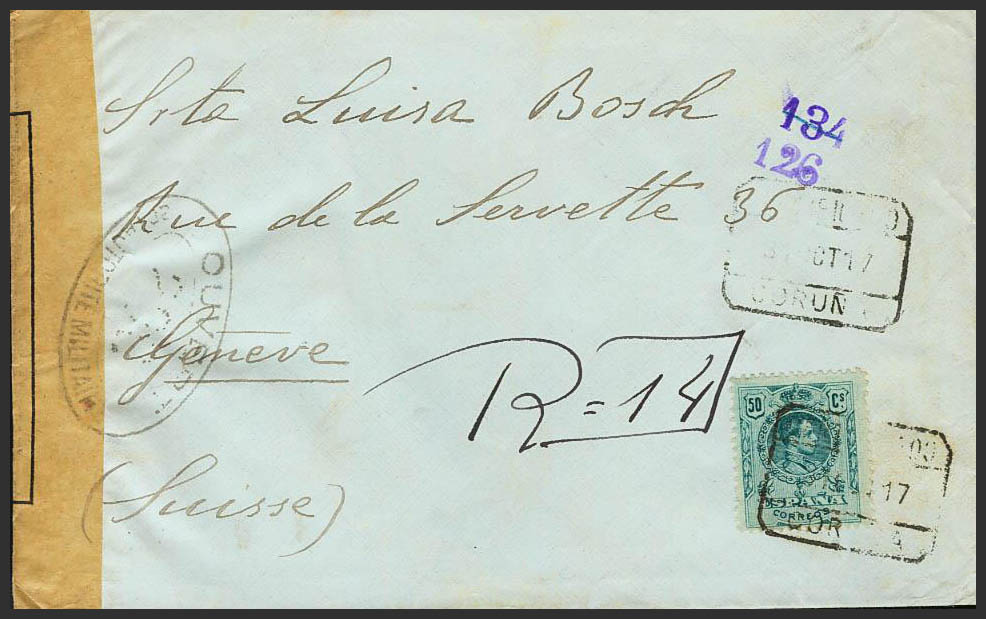 Srta Luisa Bosch
134
126
Rue de la Servette 36
OCT 17
CORUÑ
Genève
(Suisse)
R=14
50 Cs
ESPAÑA
CORREOS
17
COR A
OUVERT
MILITAIRE